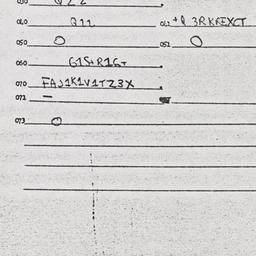 030 Q22
040 Q22 042 +Q.3RKREXCT
050 O 051 O
060 G1S+R1G+
070 FAJ1K1V1TZ3X
072 –
073 O